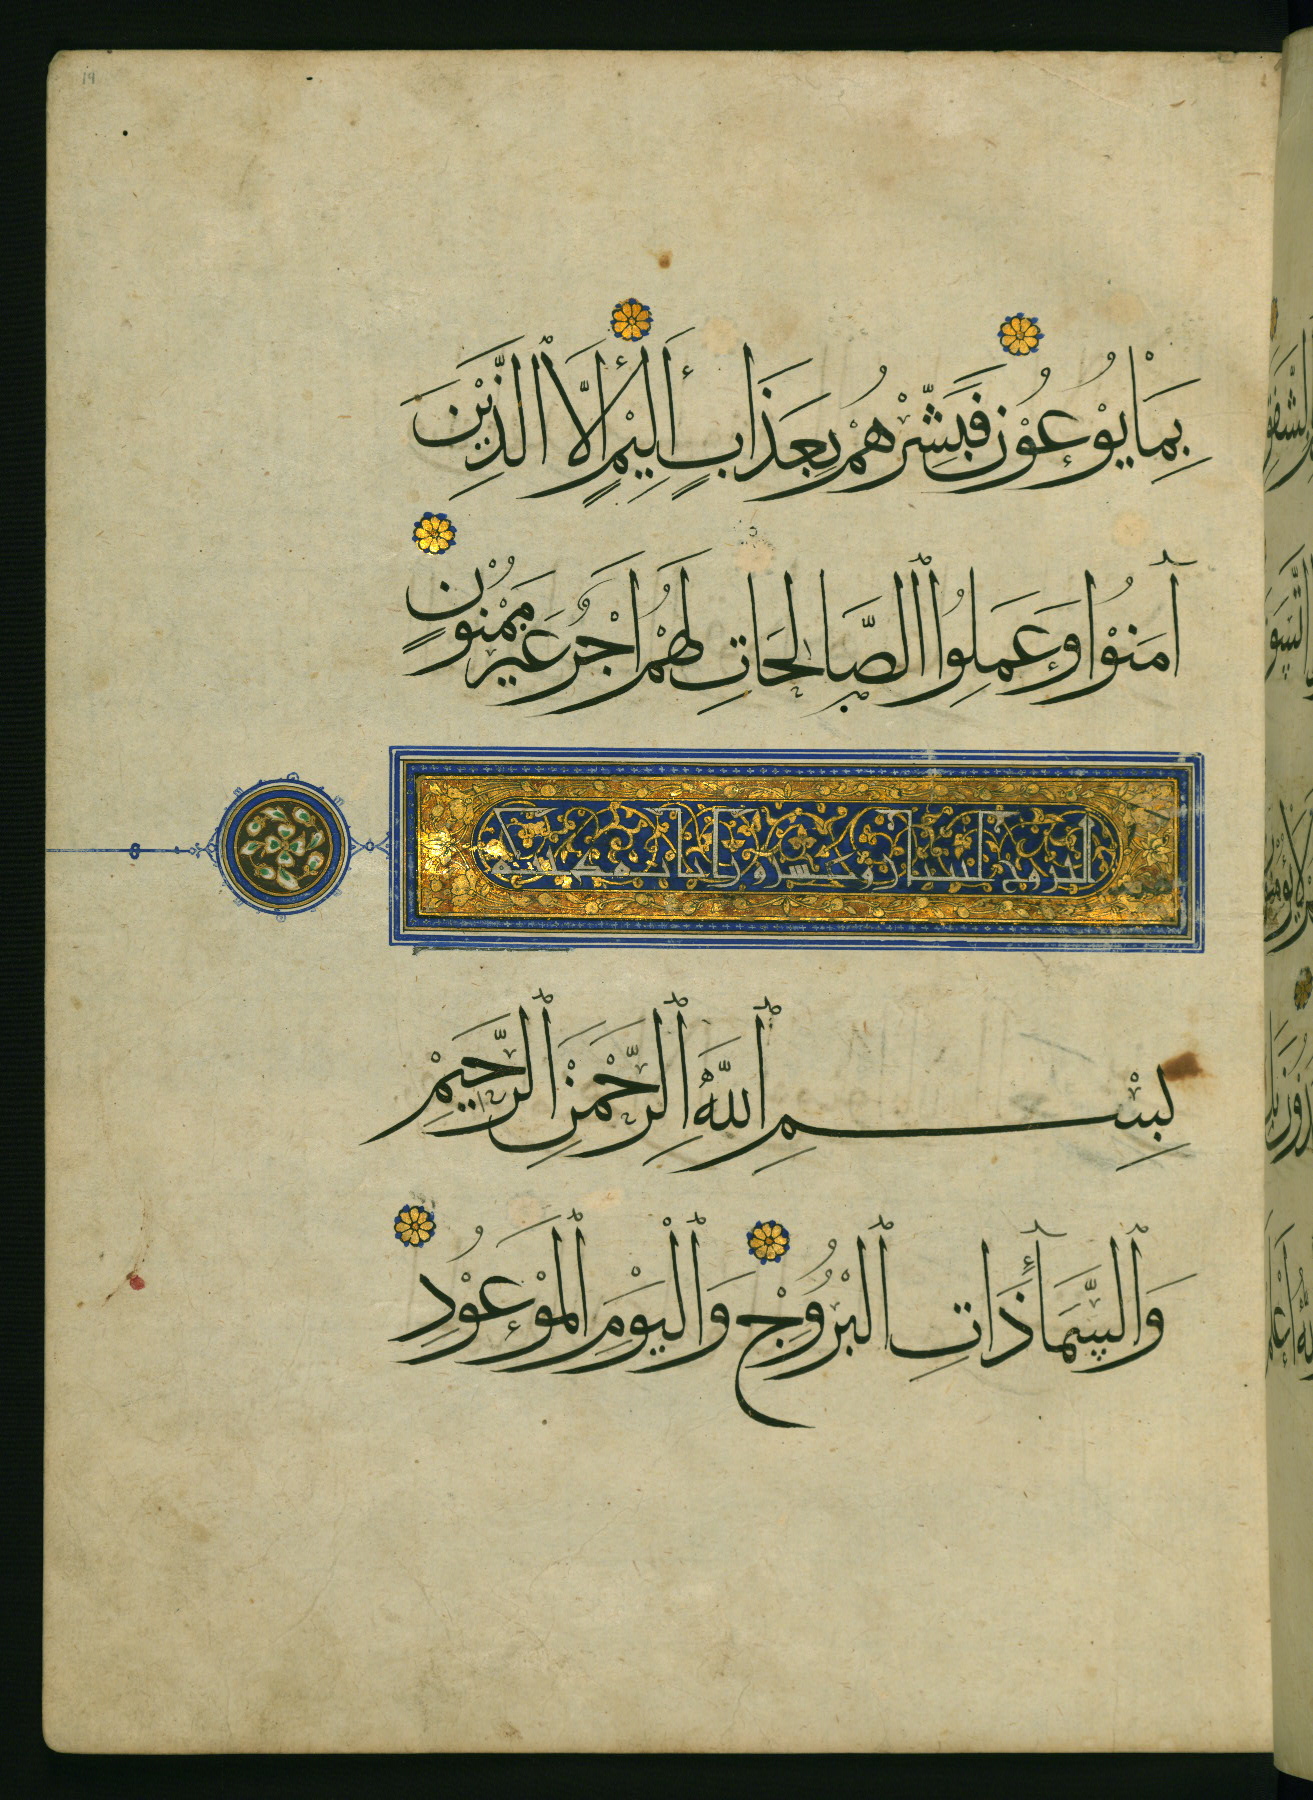 ١٩
بِمَا يُوْعُوْنَ فَبَشِّرْهُمْ بِعَذَابٍ أَلِيْمٍ إِلَّا ٱلَّذِيْنَ
آمَنُوْا وَعَمِلُوا ٱلصَّالِحَاتِ لَهُمْ أَجْرٌ غَيْرُ مَمْنُوْنٍ
البروج اثنتان وعشرون آية مكية
بِسْمِ ٱللَّهِ ٱلرَّحْمَنِ ٱلرَّحِيْمِ
وَٱلسَّمَآءِ ذَاتِ ٱلْبُرُوْجِ وَٱلْيَوْمِ ٱلْمَوْعُوْدِ